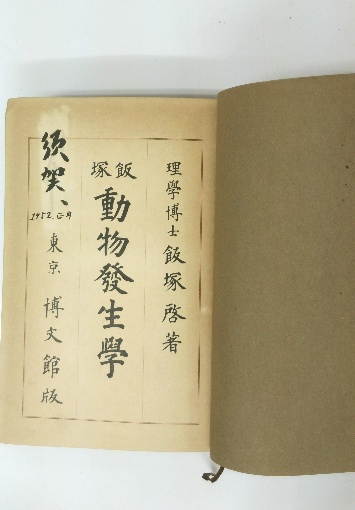 理學博士 飯塚啓著
飯塚
動物發生學
東京 博文館版
須賀、
1952.